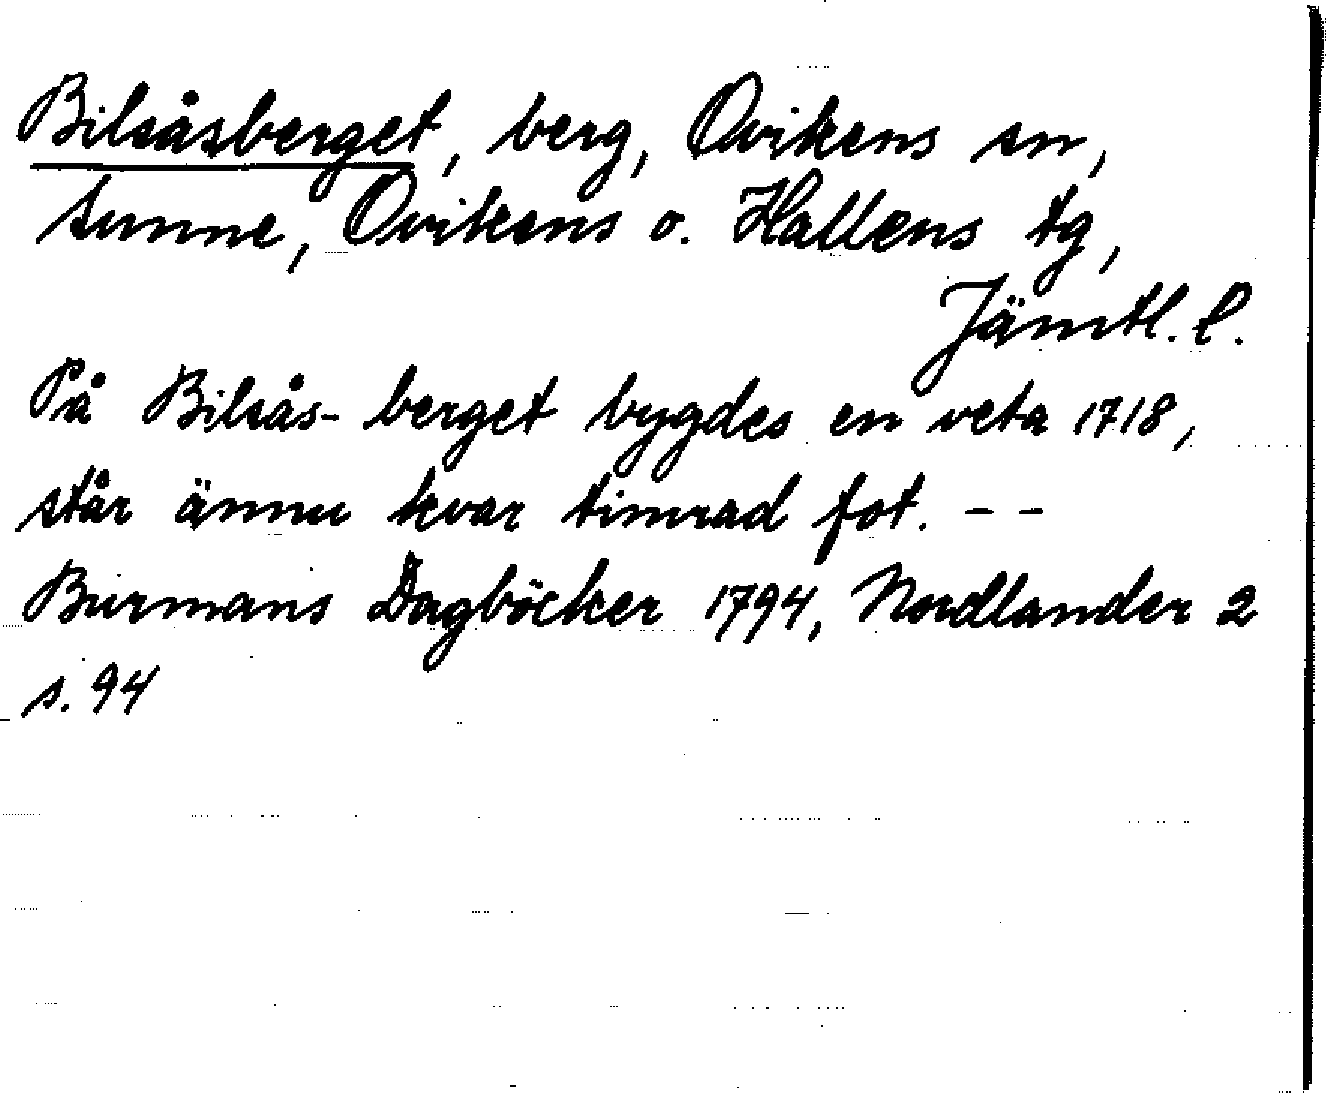 Bilsåsberget, berg, Ovikens sn,
Sunne, Ovikens o. Hallens tg,
Jämtl. l.
På Bilsås- berget bygdes en veta 1718,
står ännu kvar timrad fot. - -
Burmans Dagböcker 1794, Nordlander 2
s. 94